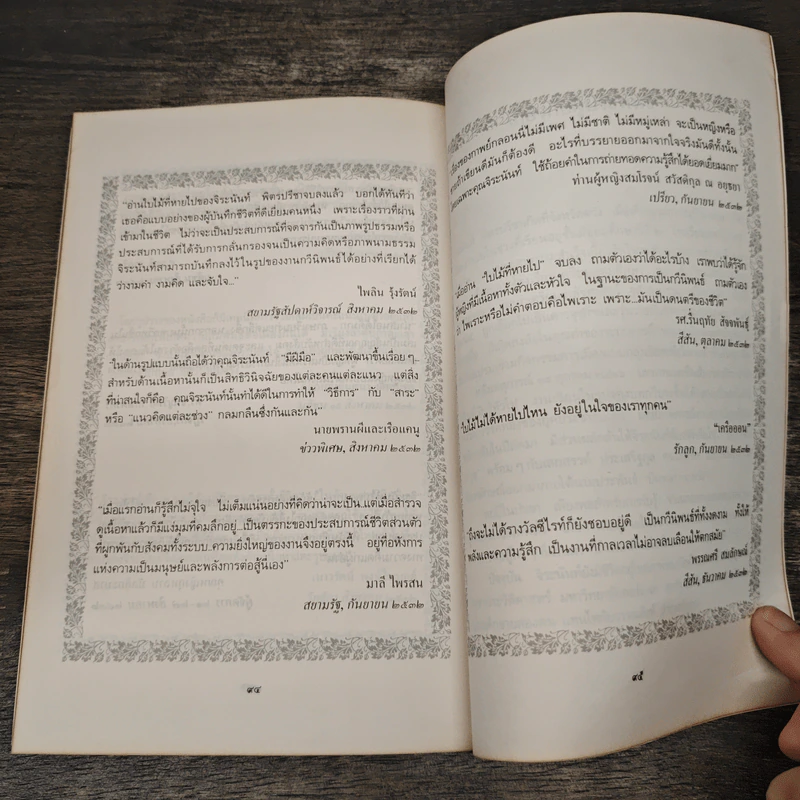 "อ่านใบไม้ที่หายไปของจิระนันท์ พิตรปรีชาจบลงแล้ว บอกได้ทันทีว่า
เธอคือแบบอย่างของผู้บันทึกชีวิตที่ดีเยี่ยมคนหนึ่ง เพราะเรื่องราวที่ผ่าน
เข้ามาในชีวิต ไม่ว่าจะเป็นประสบการณ์ที่จดจารกันเป็นภาพรูปธรรมหรือ
ประสบการณ์ที่ได้รับการกลั่นกรองจนเป็นความคิดหรือภาพนามธรรม
จิระนันท์สามารถบันทึกลงไว้ในรูปของงานกวีนิพนธ์ได้อย่างที่เรียกได้
ว่างามคำ งามคิด และจับใจ..."
ไพลิน รุ้งรัตน์
สยามรัฐสัปดาห์วิจารณ์ สิงหาคม ๒๕๓๒
"ในด้านรูปแบบนั้นถือได้ว่าคุณจิระนันท์ "มีฝีมือ" และพัฒนาขึ้นเรื่อยๆ..
สำหรับด้านเนื้อหานั้นก็เป็นสิทธิวินิจฉัยของแต่ละคนแต่ละแนว แต่สิ่ง
ที่น่าสนใจก็คือ คุณจิระนันท์นั้นทำได้ดีในการทำให้ "วิธีการ" กับ "สาระ"
หรือ "แนวคิดแต่ละช่วง" กลมกลืนซึ่งกันและกัน"
นายพรานผีและเรือแคนู
ข่าวพิเศษ, สิงหาคม ๒๕๓๒
"เมื่อแรกอ่านก็รู้สึกไม่จุใจ ไม่เต็มแน่นอย่างที่คิดว่าน่าจะเป็น..แต่เมื่อสำรวจ
ดูเนื้อหาแล้วก็มีแง่มุมที่คมลึกอยู่...เป็นตรรกะของประสบการณ์ชีวิตส่วนตัว
ที่ผูกพันกับสังคมทั้งระบบ..ความยิ่งใหญ่ของงานจึงอยู่ตรงนี้ อยู่ที่อหังการ
แห่งความเป็นมนุษย์และพลังการต่อสู้นี่เอง"
มาลี ไพรสน
สยามรัฐ, กันยายน ๒๕๓๒
๙๔
ของกาพย์กลอนนี่ไม่มีเพศ ไม่มีชาติ ไม่มีหมู่เหล่า จะเป็นหญิงหรือ
ถ้าเขียนดีมันก็ต้องดี อะไรที่บรรยายออกมาจากใจจริงมันดีทั้งนั้น
เฉพาะคุณจิระนันท์ ใช้ถ้อยคำในการถ่ายทอดความรู้สึกได้ยอดเยี่ยมมาก"
ท่านผู้หญิงสมโรจน์ สวัสดิกุล ณ อยุธยา
เปรียว, กันยายน ๒๕๓๒
"เมื่ออ่าน "ใบไม้ที่หายไป" จบลง ถามตัวเองว่าได้อะไรบ้าง เราพบว่าได้รู้จัก
ผู้หญิงที่มีเนื้อหาทั้งตัวและหัวใจ ในฐานะของการเป็นกวีนิพนธ์ ถามตัวเอง
ว่า ไพเราะหรือไม่ คำตอบคือไพเราะ เพราะ...มันเป็นดนตรีของชีวิต"
รศ.รื่นฤทัย สัจจพันธุ์
สีสัน, ตุลาคม ๒๕๓๒
"ใบไม้ไม่ได้หายไปไหน ยังอยู่ในใจของเราทุกคน"
"เครือออน"
รักลูก, กันยายน ๒๕๓๒
"ถึงจะไม่ได้รางวัลซีไรท์ก็ยังชอบอยู่ดี เป็นกวีนิพนธ์ที่ทั้งงดงาม ทั้งให้
พลังและความรู้สึก เป็นงานที่กาลเวลาไม่อาจลบเลือนให้ตกสมัย"
พรรณศรี สมลักษณ์
สีสัน, ธันวาคม ๒๕๓๒
๙๕